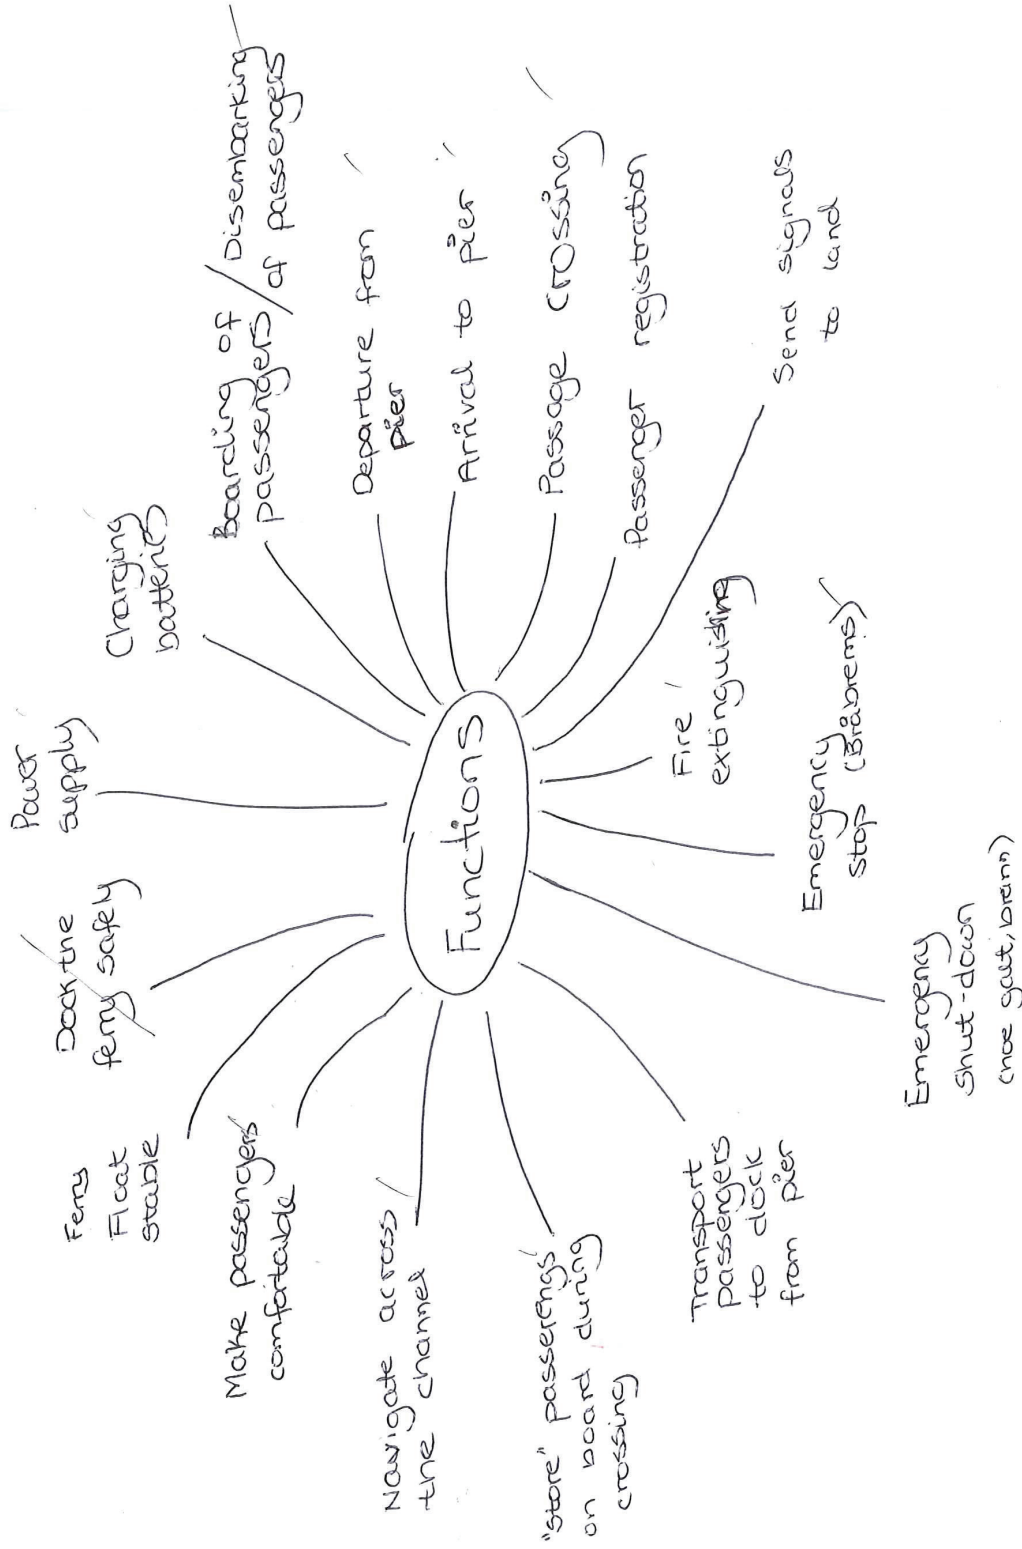 Functions
Power
supply
Charging
batteries
Boarding of
passengers
/ Disembarking
of passengers
Departure from
pier
Arrival to pier
Passage crossing
Passenger registration
Send signals
to land
Fire
extinguishing
Emergency
stop (Bråbrems)
Emergency
shut-down
(noe galt, brann)
Transport
passengers
to dock
from pier
"store" passerengs
on board during
crossing
Navigate across
the channel
Make passengers
comfortable
Ferry
Float
stable
Dock the
ferry safely